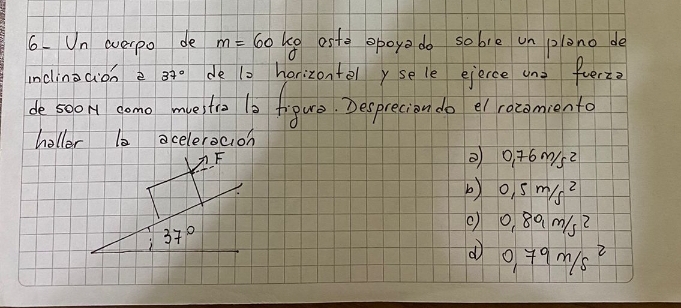 6- Un cuerpo de m= 60 kg esta apoyado sobre un plano de
inclinación a 37° de la horizontal y se le ejerce una fuerza
de 500N como muestra la figura. Despreciando el rozamiento
hallar la aceleración
a) 0,76 m/s²
b) 0,5 m/s²
c) 0,89 m/s²
d) 0,79 m/s²
F
37°